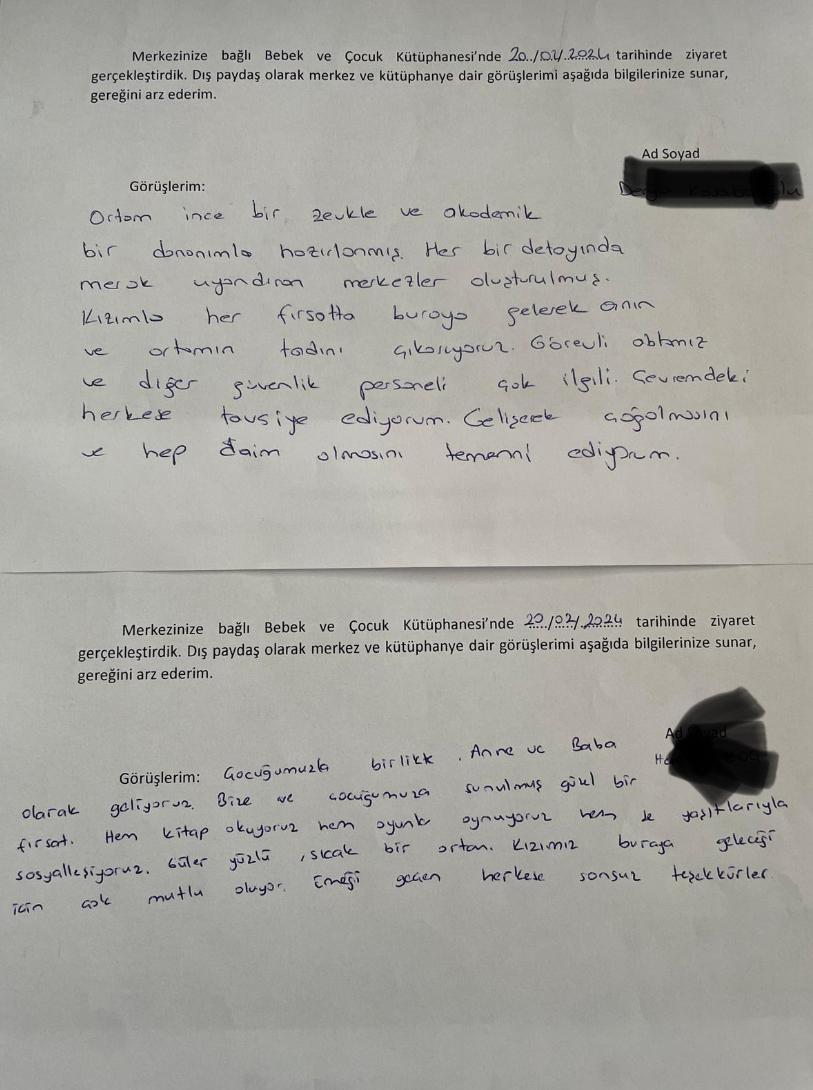 Merkezinize bağlı Bebek ve Çocuk Kütüphanesi'nde 20../02/.2024 tarihinde ziyaret
gerçekleştirdik. Dış paydaş olarak merkez ve kütüphanye dair görüşlerimi aşağıda bilgilerinize sunar,
gereğini arz ederim.
Ad Soyad
Görüşlerim:
Ortam ince bir zevkle ve akademik
bir donanımla hazırlanmış. Her bir detayında
merak uyandıran merkezler oluşturulmuş.
Kızımla her fırsatta buraya gelerek anın
ve ortamın tadını çıkarıyoruz. Görevli ablamız
ve diğer güvenlik personeli çok ilgili. Çevremdeki
herkese tavsiye ediyorum. Gelişerek çoğalmasını
ve hep daim olmasını temenni ediyorum.
Merkezinize bağlı Bebek ve Çocuk Kütüphanesi'nde 20../02/.2024 tarihinde ziyaret
gerçekleştirdik. Dış paydaş olarak merkez ve kütüphanye dair görüşlerimi aşağıda bilgilerinize sunar,
gereğini arz ederim.
Görüşlerim: Çocuğumuzla birlikte . Anne ve Baba
olarak geliyoruz. Bize ve çocuğumuza sunulmuş güzel bir
fırsat. Hem kitap okuyoruz hem oyunlar oynuyoruz hem de yaşıtlarıyla
sosyalleşiyoruz. Güler yüzlü , sıcak bir ortam. Kızımız buraya geleceği
için çok mutlu oluyor. Emeği geçen herkese sonsuz teşekkürler.